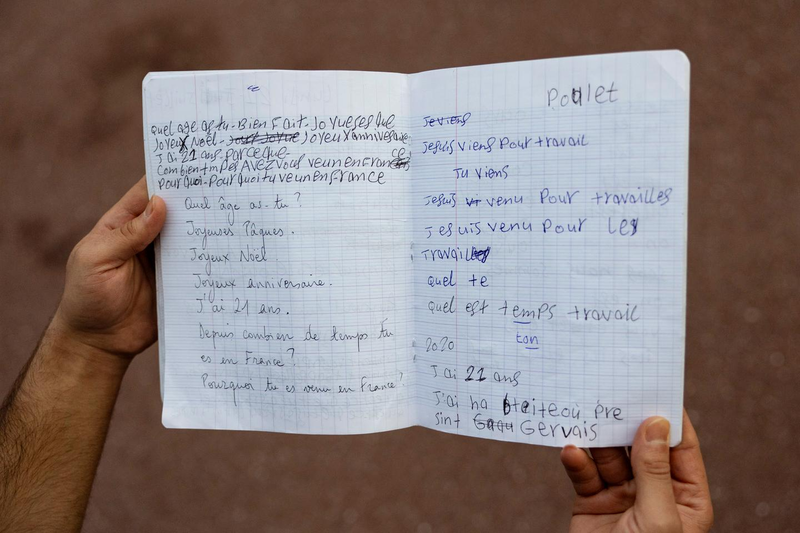 ce
Quel age as tu - Bien Fait - Joyueseque
Joyeux Noël - Joux Joyue Joyeux anniversaire
J'ai 21 ans. Parceque
ce
combien tmpes AVEZ VOUS veun en France
Pour quoi - Pour quoi tu veun en France
Quel âge as-tu ?
Joyeuses Pâques.
Joyeux Noël.
Joyeux anniversaire.
J'ai 21 ans.
Depuis combien de temps tu
es en France ?
Pourquoi tu es venu en France ?
Poulet
Je viens
Jesuis viens Pour travail
Tu viens
Jesuis vi venu Pour travailles
Je suis venu Pour les
Travailles
quel te
quel est temps travail
ton
2020
J'ai 21 ans
J'ai ha Pre
Sint Gervais